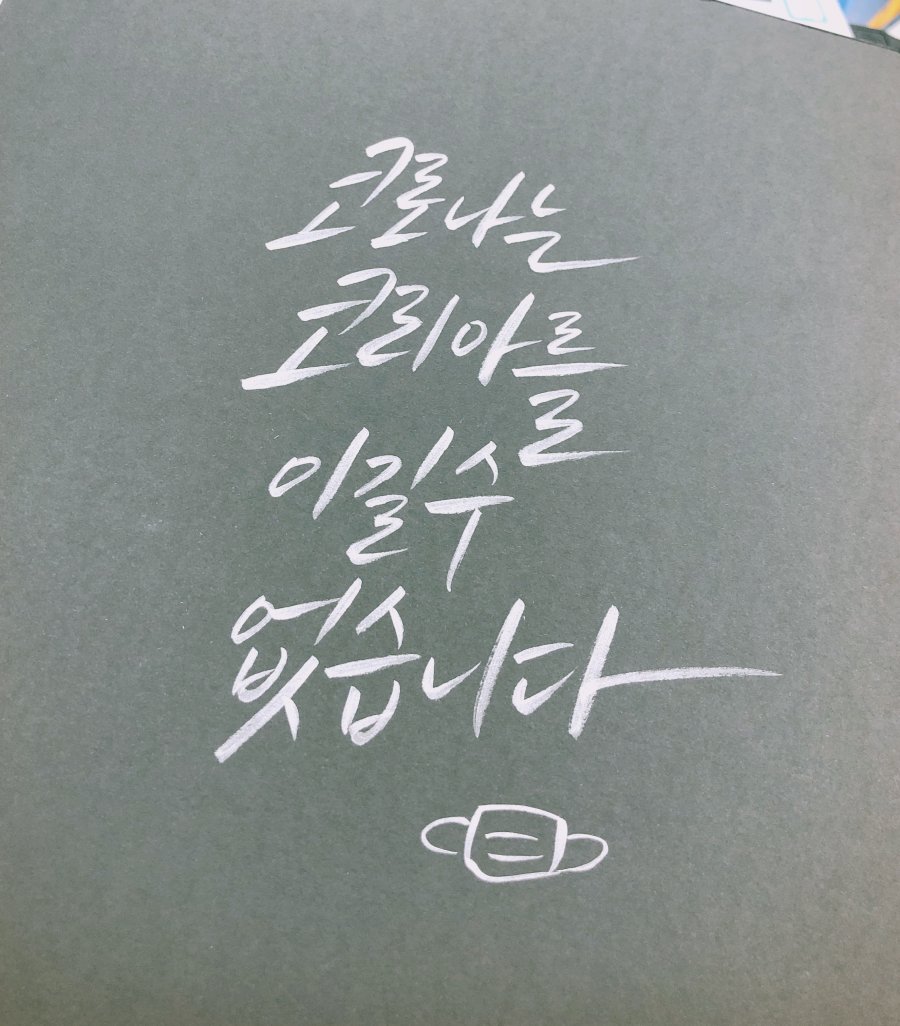 코로나는
코리아를
이길수
없습니다